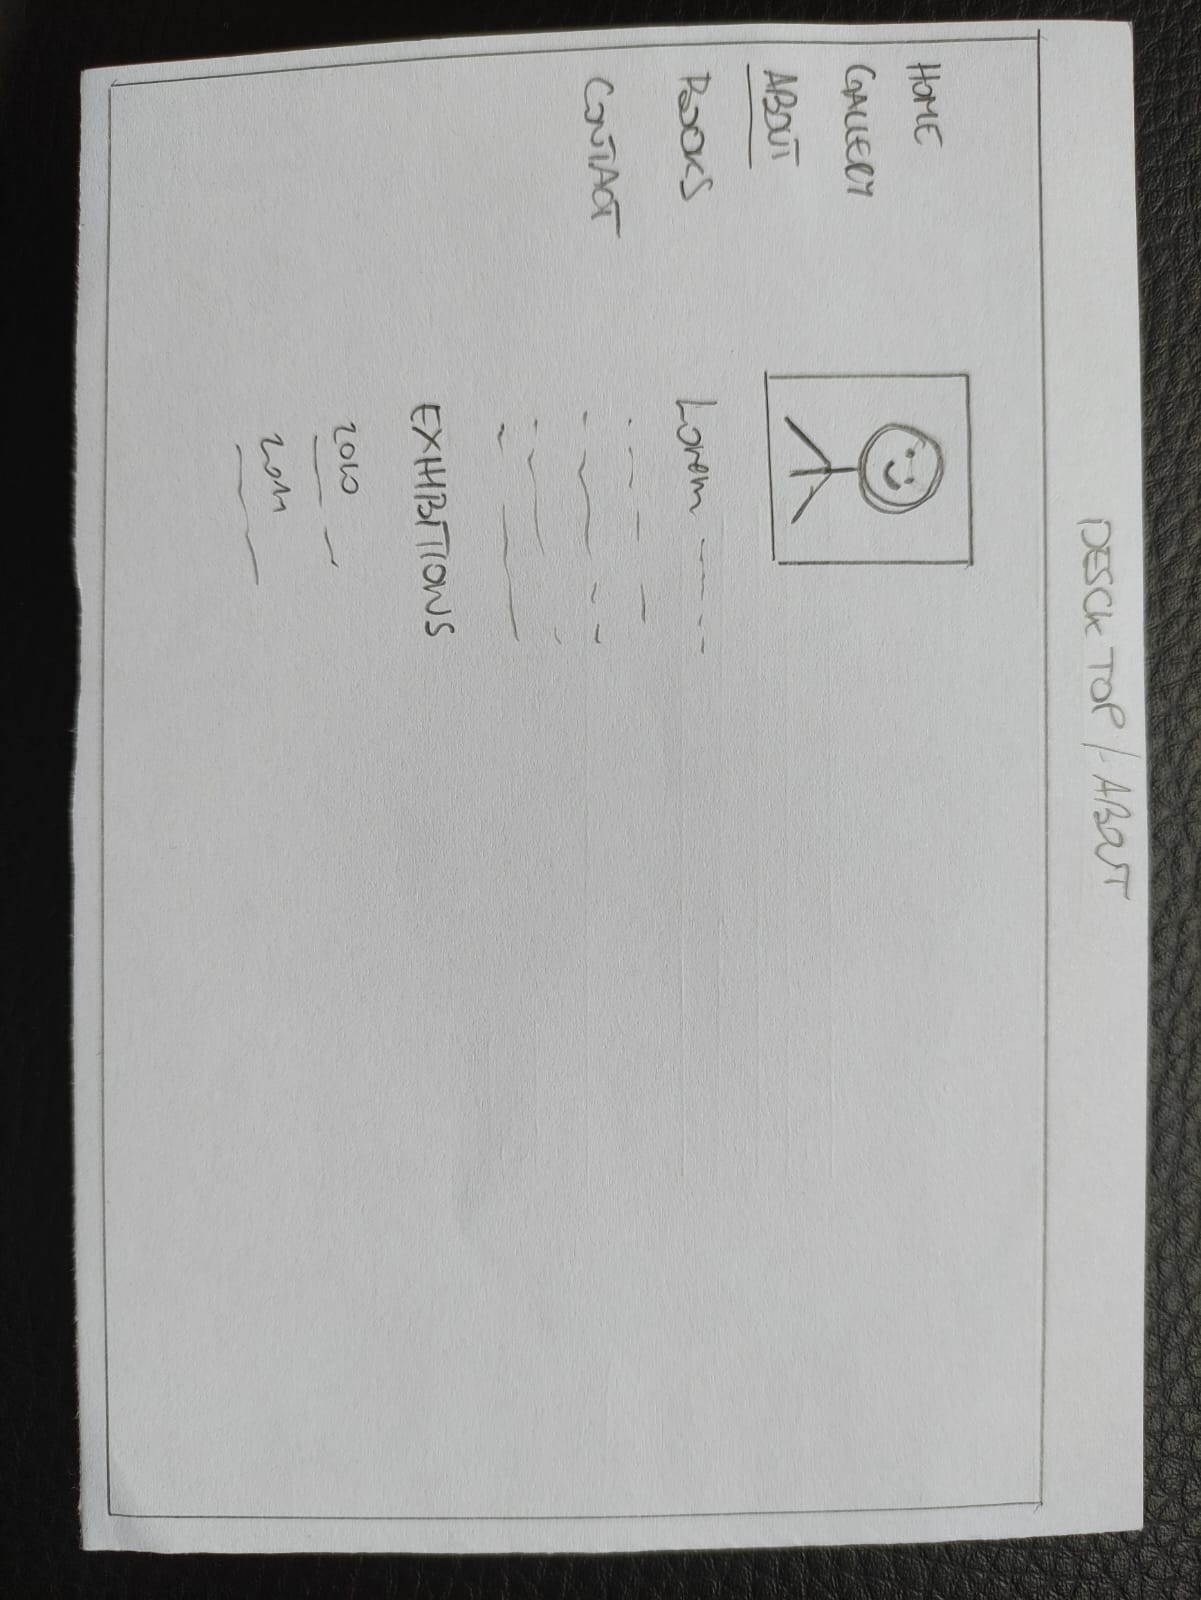 DESCK TOP / ABOUT
HOME
GALLERY
ABOUT
BOOKS
CONTACT
Lorem
EXHIBITIONS
2010
2011